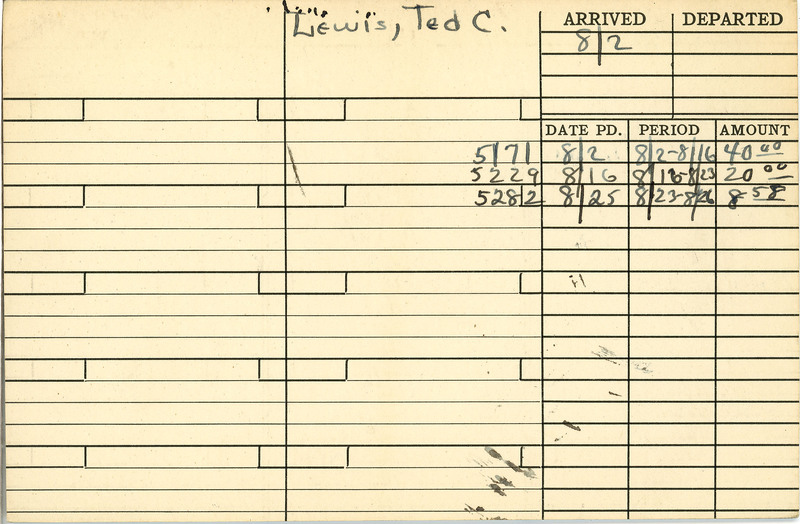 Lewis, Ted C.
ARRIVED DEPARTED
8/2
DATE PD. PERIOD AMOUNT
5171 8/2 8/2-8/16 40 00
5229 8/16 8/16-8/23 20 00
5282 8/25 8/23-8/26 8 58